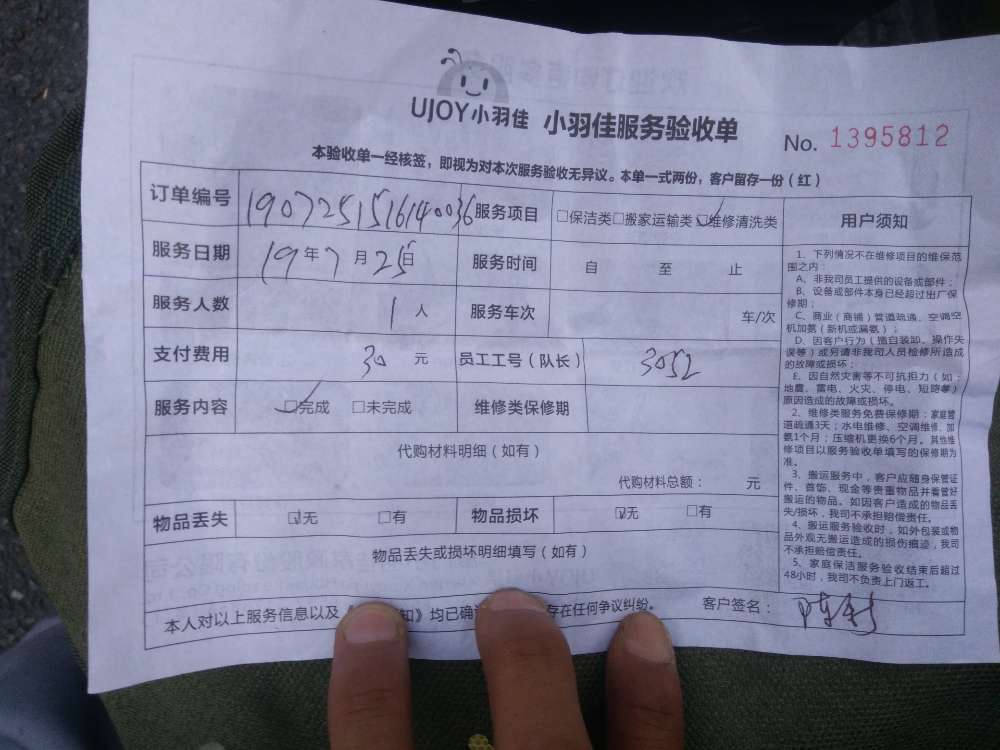 UJOY小羽佳 小羽佳服务验收单
No. 1395812
本验收单一经核签，即视为对本次服务验收无异议。本单一式两份，客户留存一份（红）
订单编号 1907251516140036 服务项目 □保洁类□搬家运输类☑维修清洗类
服务日期 19年7月25日 服务时间 自 至 止
服务人数 1人 服务车次 车/次
支付费用 30元 员工工号（队长） 3052
服务内容 ☑完成 □未完成 维修类保修期
代购材料明细（如有）
代购材料总额： 元
物品丢失 ☑无 □有 物品损坏 ☑无 □有
物品丢失或损坏明细填写（如有）
用户须知
1、下列情况不在维修项目的维保范
围之内：
A、非我司员工提供的设备或部件；
B、设备或部件本身已经超过出厂保
修期；
C、商业（商铺）管道疏通、空调空
机加氨（新机或漏氨）；
D、因客户行为（擅自装卸、操作失
误等）或另请非我司人员检修所造成
的故障或损坏；
E、因自然灾害等不可抗拒力（如：
地震、雷电、火灾、停电、短路等）
原因造成的故障或损坏。
2、维修类服务免费保修期：家庭管
道疏通3天；水电维修、空调维修、加
氨1个月；压缩机更换6个月。其他维
修项目以服务验收单填写的保修期为
准。
3、搬运服务中，客户应随身保管证
件、首饰、现金等贵重物品并看管好
搬运的物品。如因客户造成的物品丢
失/损坏，我司不承担赔偿责任。
4、搬运服务验收时，如外包装或物
品外观无搬运造成的损伤痕迹，我司
不承担赔偿责任。
5、家庭保洁服务验收结束后超过
48小时，我司不负责上门返工。
本人对以上服务信息以及《 知》均已确 存在任何争议纠纷。 客户签名：